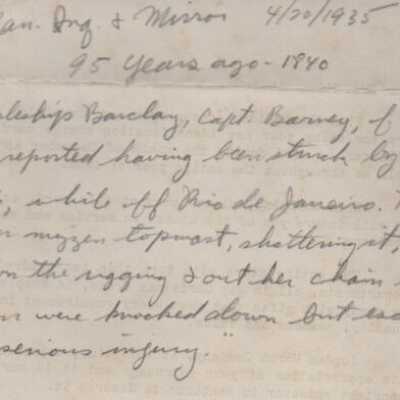 an. Inq. & Mirror 4/20/1935
95 years ago - 1840
leships Barclay, Capt. Barney, of
reported having been struck by
, while off Rio de Janeiro.
mizzen topmast, shattering it,
on the rigging & out her chain
were knocked down but esc
serious injury."